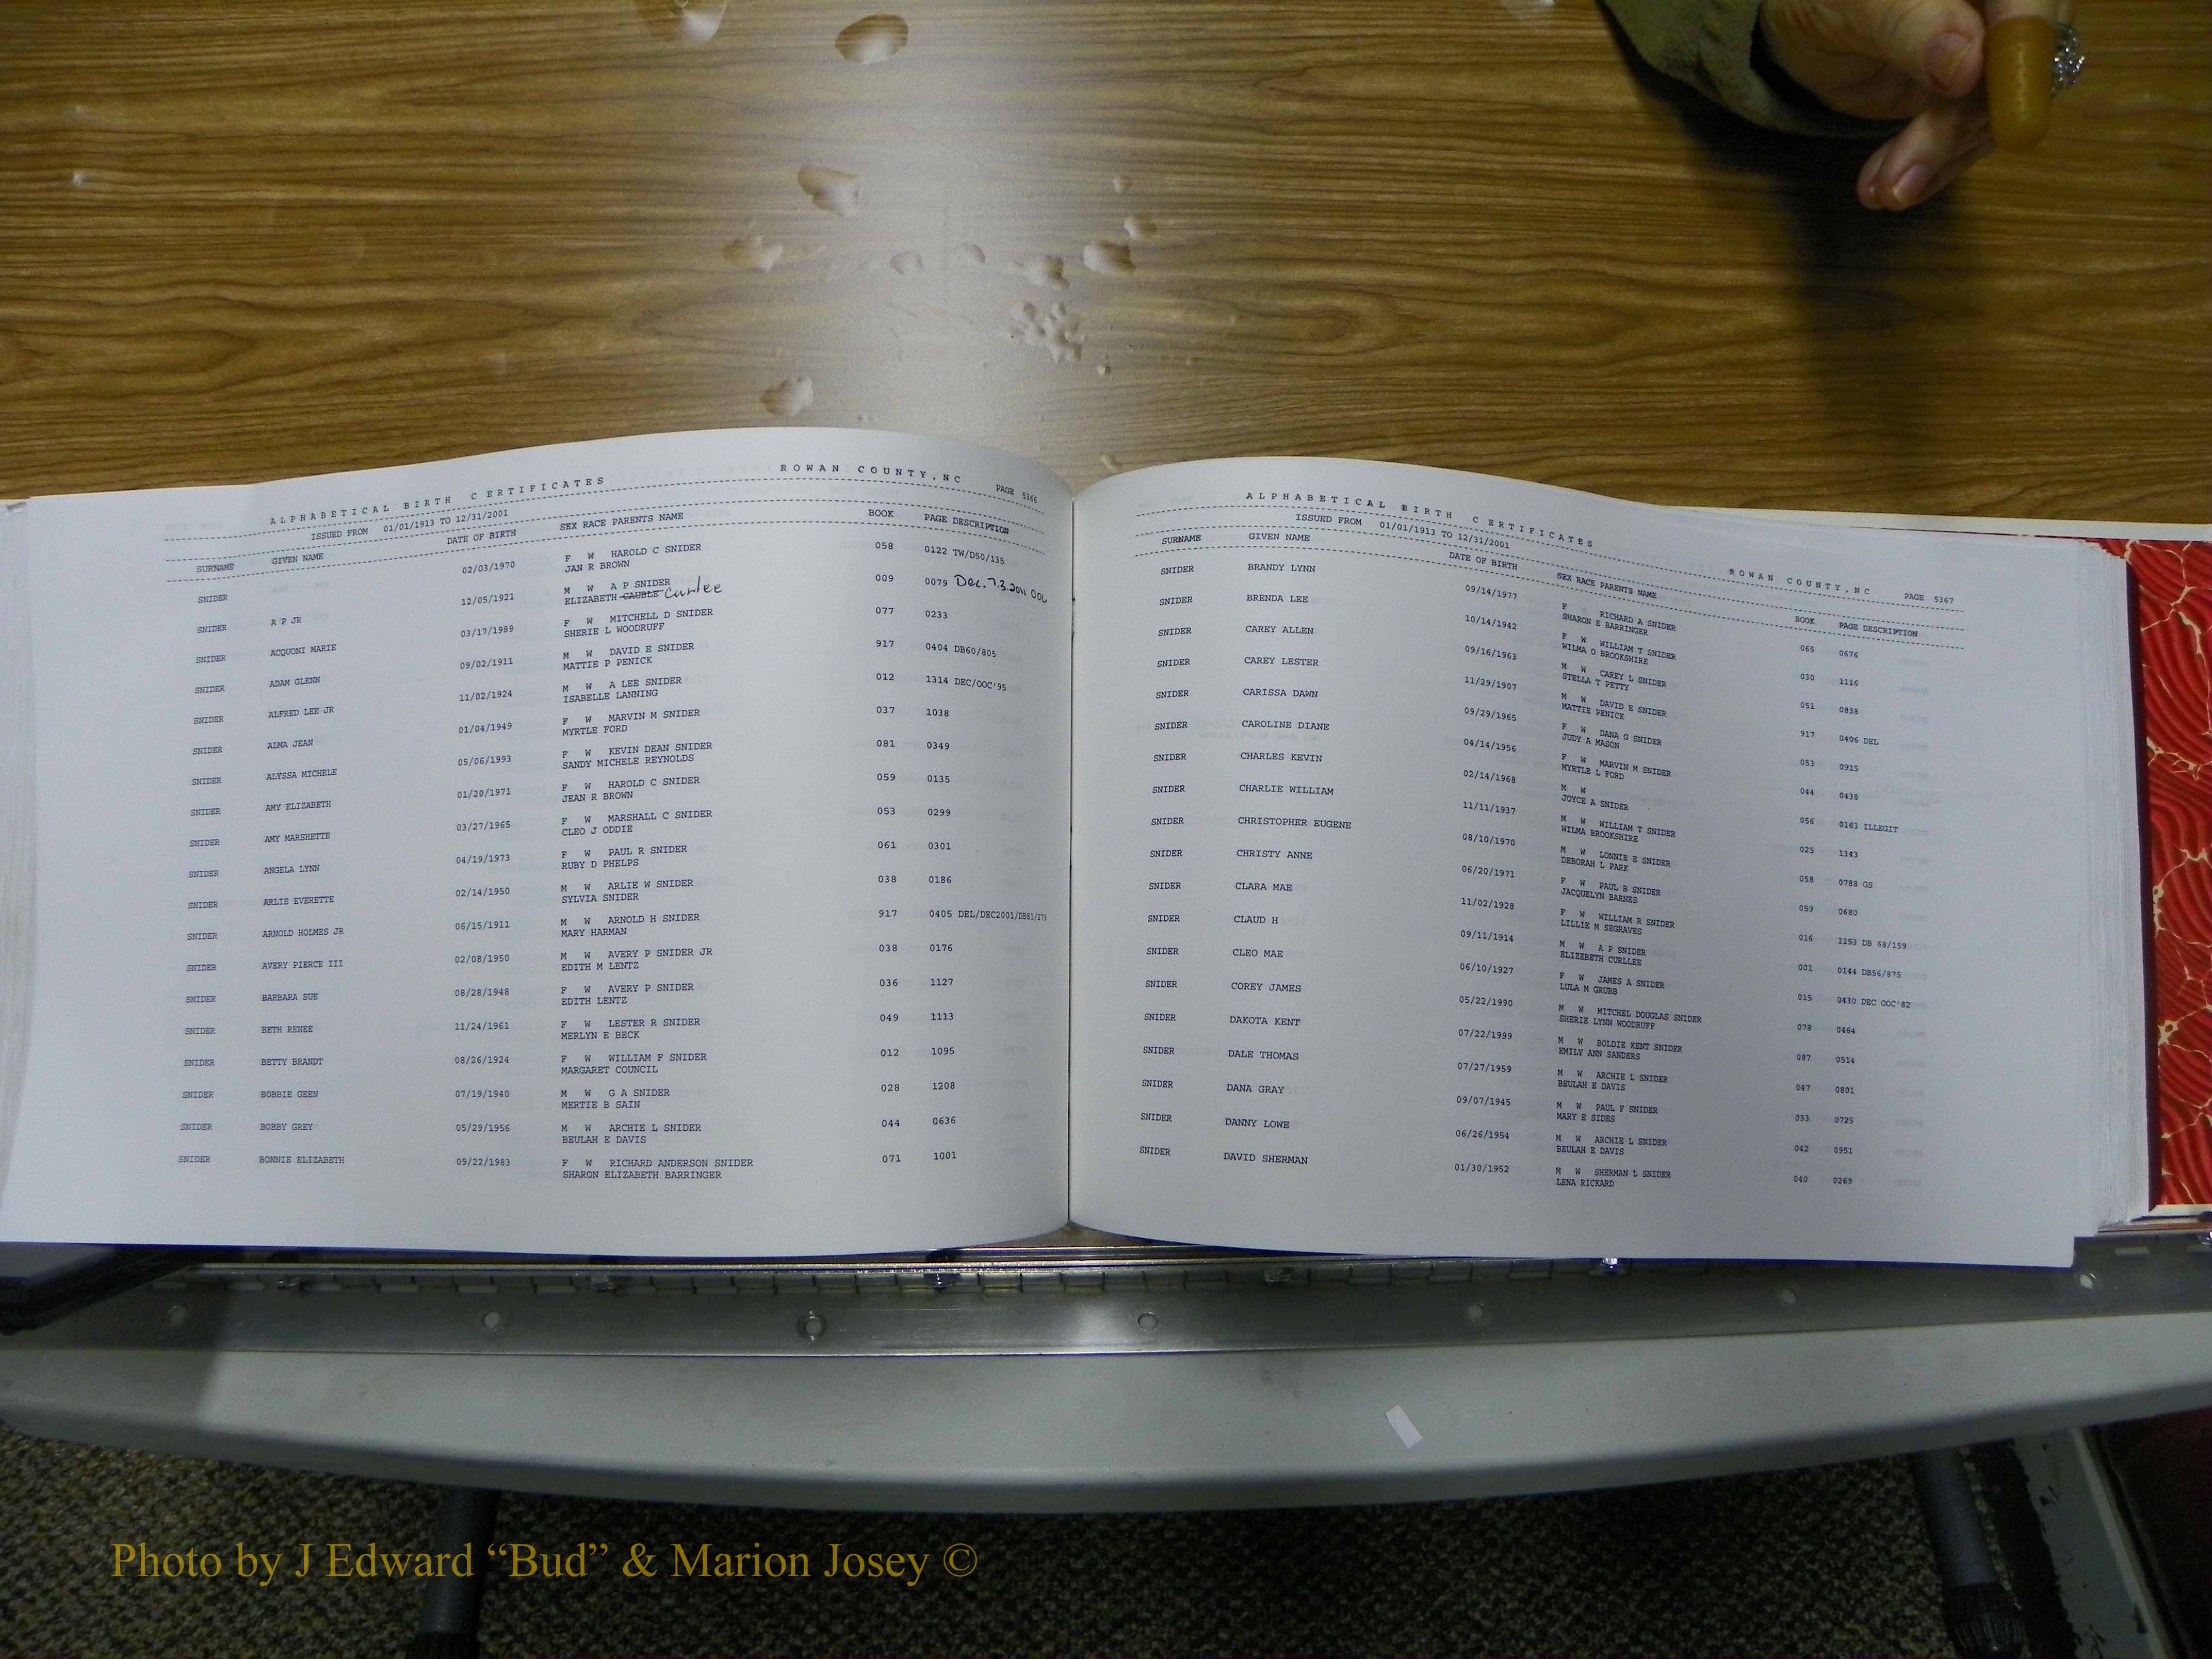 ALPHABETICAL BIRTH CERTIFICATES ROWAN COUNTY,NC PAGE 5366
ISSUED FROM 01/01/1913 TO 12/31/2001
SURNAME GIVEN NAME DATE OF BIRTH SEX RACE PARENTS NAME BOOK PAGE DESCRIPTION
SNIDER 02/03/1970 F W HAROLD C SNIDER 058 0122 TW/D50/135
JAN R BROWN
SNIDER A P JR 12/05/1921 M W A P SNIDER 009 0079 Dec. 7.3.2011
ELIZABETH CAUBLE Curlee
SNIDER ACQUONI MARIE 03/17/1989 F W MITCHELL D SNIDER 077 0233
SHERIE L WOODRUFF
SNIDER ADAM GLENN 09/02/1911 M W DAVID E SNIDER 917 0404 DB60/805
MATTIE P PENICK
SNIDER ALFRED LEE JR 11/02/1924 M W A LEE SNIDER 012 1314 DEC/OOC'95
ISABELLE LANNING
SNIDER ALMA JEAN 01/04/1949 F W MARVIN M SNIDER 037 1038
MYRTLE FORD
SNIDER ALYSSA MICHELE 05/06/1993 F W KEVIN DEAN SNIDER 081 0349
SANDY MICHELE REYNOLDS
SNIDER AMY ELIZABETH 01/20/1971 F W HAROLD C SNIDER 059 0135
JEAN R BROWN
SNIDER AMY MARSHETTE 03/27/1965 F W MARSHALL C SNIDER 053 0299
CLEO J ODDIE
SNIDER ANGELA LYNN 04/19/1973 F W PAUL R SNIDER 061 0301
RUBY D PHELPS
SNIDER ARLIE EVERETTE 02/14/1950 M W ARLIE W SNIDER 038 0186
SYLVIA SNIDER
SNIDER ARNOLD HOLMES JR 06/15/1911 M W ARNOLD H SNIDER 917 0405 DEL/DEC2001/DB81/279
MARY HARMAN
SNIDER AVERY PIERCE III 02/08/1950 M W AVERY P SNIDER JR 038 0176
EDITH M LENTZ
SNIDER BARBARA SUE 08/28/1948 F W AVERY P SNIDER 036 1127
EDITH LENTZ
SNIDER BETH RENEE 11/24/1961 F W LESTER R SNIDER 049 1113
MERLYN E BECK
SNIDER BETTY BRANDT 08/26/1924 F W WILLIAM F SNIDER 012 1095
MARGARET COUNCIL
SNIDER BOBBIE GEEN 07/19/1940 M W G A SNIDER 028 1208
MERTIE B SAIN
SNIDER BOBBY GREY 05/29/1956 M W ARCHIE L SNIDER 044 0636
BEULAH E DAVIS
SNIDER BONNIE ELIZABETH 09/22/1983 F W RICHARD ANDERSON SNIDER 071 1001
SHARON ELIZABETH BARRINGER
ALPHABETICAL BIRTH CERTIFICATES ROWAN COUNTY,NC PAGE 5367
ISSUED FROM 01/01/1913 TO 12/31/2001
SURNAME GIVEN NAME DATE OF BIRTH SEX RACE PARENTS NAME BOOK PAGE DESCRIPTION
SNIDER BRANDY LYNN 09/14/1977 F RICHARD A SNIDER 065 0676
SHARON E BARRINGER
SNIDER BRENDA LEE 10/14/1942 F W WILLIAM T SNIDER 030 1116
WILMA O BROOKSHIRE
SNIDER CAREY ALLEN 09/16/1963 M W CAREY L SNIDER 051 0838
STELLA T PETTY
SNIDER CAREY LESTER 11/29/1907 M W DAVID E SNIDER 917 0406 DEL
MATTIE PENICK
SNIDER CARISSA DAWN 09/29/1965 F W DANA G SNIDER 053 0915
JUDY A MASON
SNIDER CAROLINE DIANE 04/14/1956 F W MARVIN M SNIDER 044 0438
MYRTLE L FORD
SNIDER CHARLES KEVIN 02/14/1968 M W 056 0163 ILLEGIT
JOYCE A SNIDER
SNIDER CHARLIE WILLIAM 11/11/1937 M W WILLIAM T SNIDER 025 1343
WILMA BROOKSHIRE
SNIDER CHRISTOPHER EUGENE 08/10/1970 M W LONNIE E SNIDER 058 0788 GS
DEBORAH L PARK
SNIDER CHRISTY ANNE 06/20/1971 F W PAUL B SNIDER 059 0680
JACQUELYN BARNES
SNIDER CLARA MAE 11/02/1928 F W WILLIAM R SNIDER 016 1153 DB 68/159
LILLIE M SEGRAVES
SNIDER CLAUD H 09/11/1914 M W A P SNIDER 001 0144 DB56/875
ELIZEBETH CURLLEE
SNIDER CLEO MAE 06/10/1927 F W JAMES A SNIDER 015 0430 DEC OOC'82
LULA M GRUBB
SNIDER COREY JAMES 05/22/1990 M W MITCHEL DOUGLAS SNIDER 078 0464
SHERIE LYNN WOODRUFF
SNIDER DAKOTA KENT 07/22/1999 M W BOLDIE KENT SNIDER 087 0514
EMILY ANN SANDERS
SNIDER DALE THOMAS 07/27/1959 M W ARCHIE L SNIDER 047 0801
BEULAH E DAVIS
SNIDER DANA GRAY 09/07/1945 M W PAUL F SNIDER 033 0725
MARY E SIDES
SNIDER DANNY LOWE 06/26/1954 M W ARCHIE L SNIDER 042 0951
BEULAH E DAVIS
SNIDER DAVID SHERMAN 01/30/1952 M W SHERMAN L SNIDER 040 0269
LENA RICKARD
Photo by J Edward “Bud” & Marion Josey ©